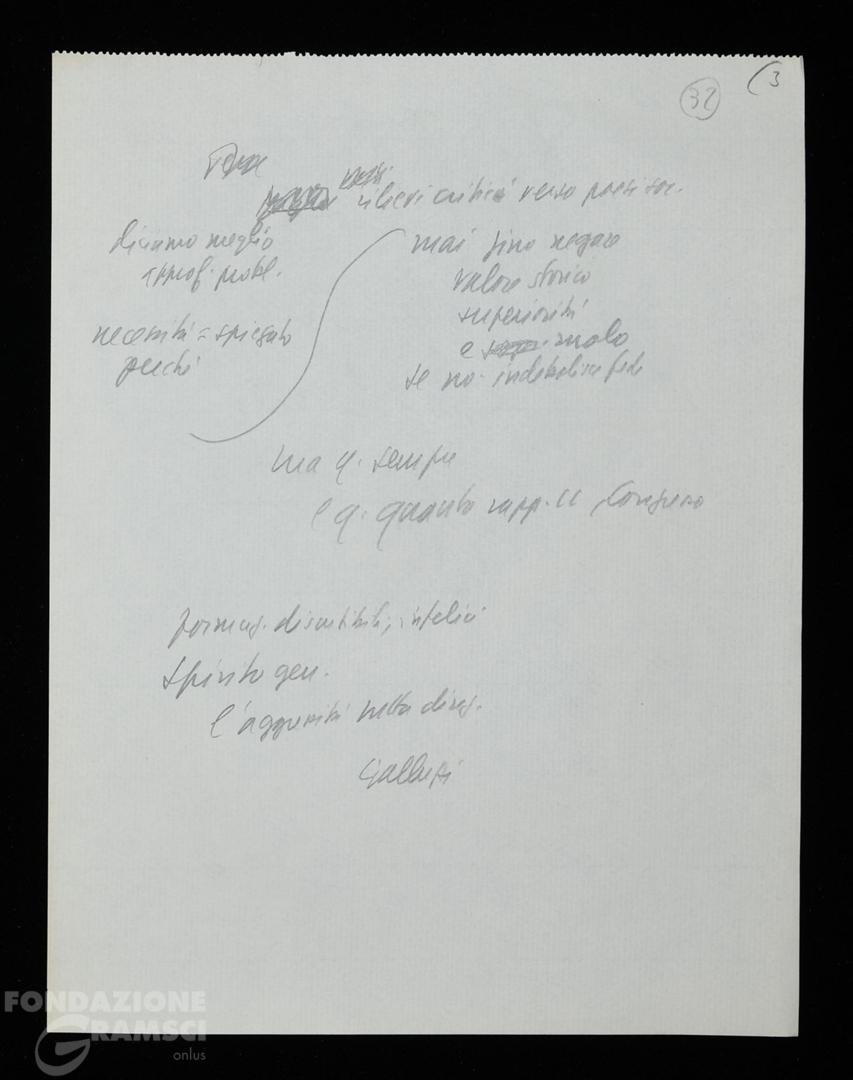 32
3
rilievi critici verso paesi soc.
diciamo meglio
approf. probl.
necessità = spiegato
perché
mai fino negare
valore storico
superiorità
e ruolo
se no indebolisce fede
ma q. sempre
e q. quanto rapp. CC, Congresso
formulaz. discutibili, infelici
spirito gen.
l'aggressività nella
Galluzzi
FONDAZIONE
GRAMSCI
onlus